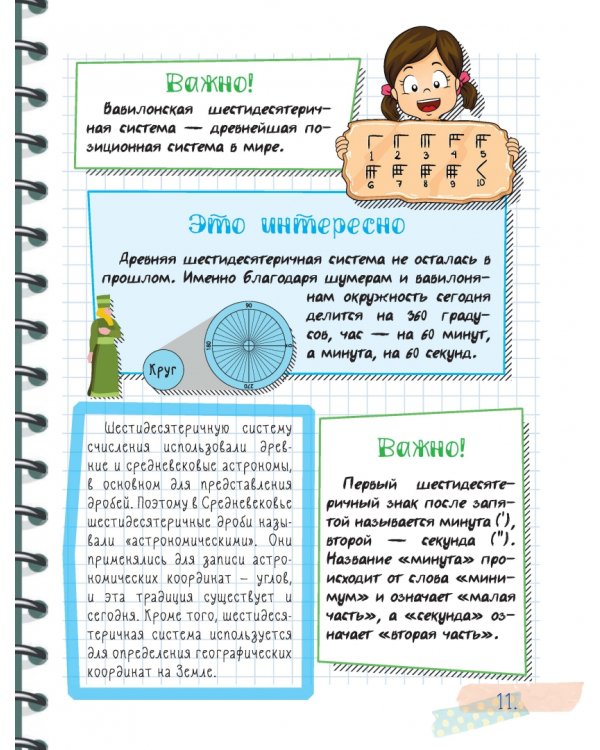 Важно!
Вавилонская шестидесятерич-
ная система — древнейшая по-
зиционная система в мире.
1 2 3 4 5
6 7 8 9 10
Это интересно
Древняя шестидесятеричная система не осталась в
прошлом. Именно благодаря шумерам и вавилоня-
нам окружность сегодня
делится на 360 граду-
сов, час — на 60 минут,
а минута, на 60 секунд.
90
180
0
270
Круг
Шестидесятеричную систему
счисления использовали древ-
ние и средневековые астрономы,
в основном для представления
дробей. Поэтому в Средневековье
шестидесятеричные дроби назы-
вали «астрономическими». Они
применялись для записи астро-
номических координат – углов,
и эта традиция существует и
сегодня. Кроме того, шестидеся-
теричная система используется
для определения географических
координат на Земле.
Важно!
Первый шестидесяте-
ричный знак после запя-
той называется минута ('),
второй — секунда (").
Название «минута» про-
исходит от слова «мини-
мум» и означает «малая
часть», а «секунда» оз-
начает «вторая часть».
11.